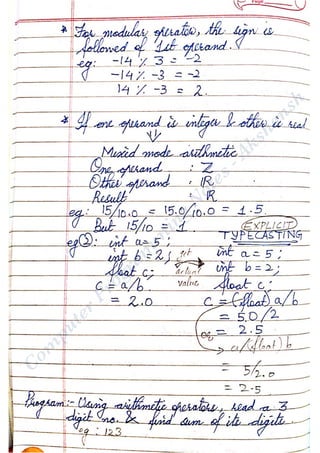 * For modular operator, the sign is
followed of 1st operand.
eg: -14 % 3 = -2
-14 % -3 = -2
14 % -3 = 2.
* If one operand is integer & other is real
⇓
Mixed mode arithmetic
One operand : Z
Other operand : R
Result : R
eg: 15/10.0 = 15.0/10.0 = 1.5
But 15/10 = 1
eg②: int a=5;
int b=2;
float c;
c = a/b
= 2.0
get
actual
value
EXPLICIT
TYPECASTING
int a=5;
int b=2;
float c;
c = (float) a/b
= 5.0/2
= 2.5
or
a/(float) b
= 5/2.0
= 2.5
Program:- Using arithmetic operators, read a 3
digit no. & find sum of its digits.
eg: 123